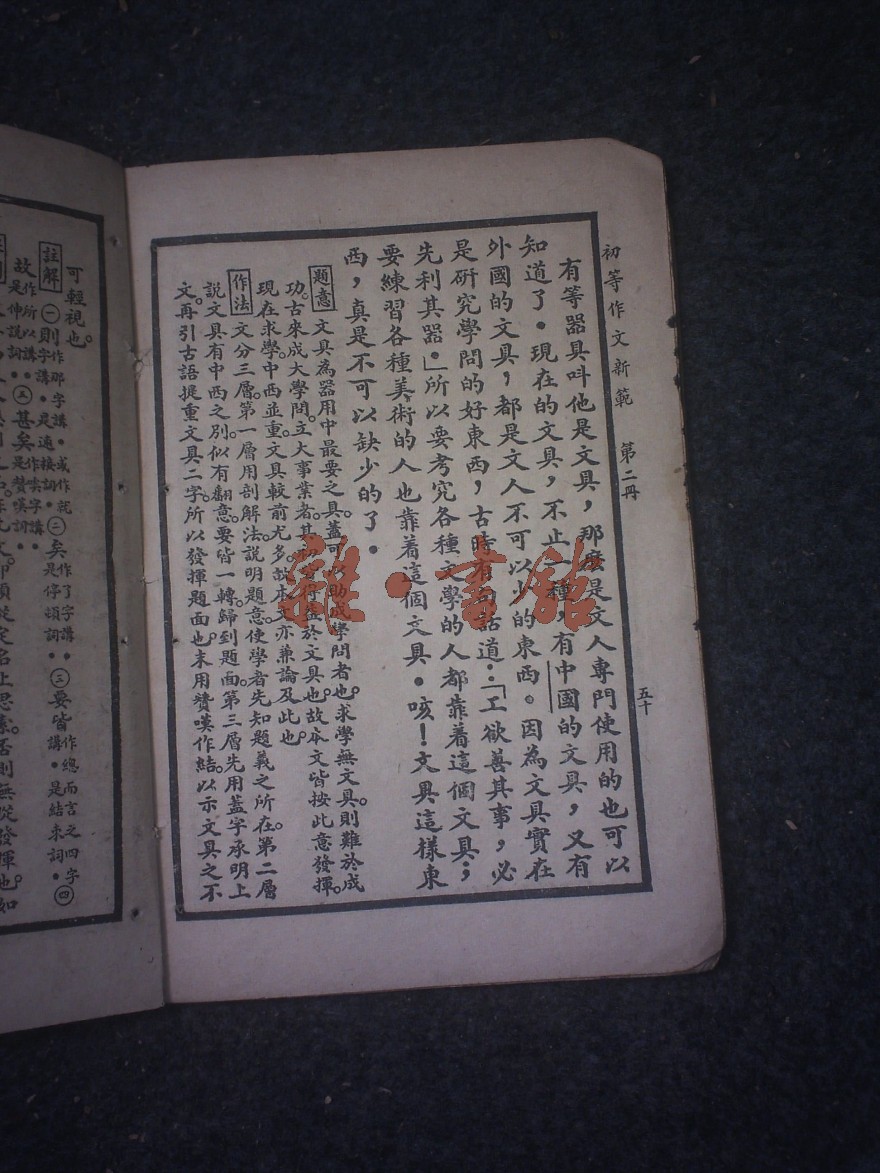 初等作文新範　第二冊
五十
有等器具叫他是文具，那麼是文人專門使用的也可以
知道了．現在的文具，不止一種，有中國的文具，又有
外國的文具，都是文人不可以少的東西。因為文具實在
是研究學問的好東西，古時有句話道．「工欲善其事，必
先利其器．」所以要考究各種文學的人都靠着這個文具；
要練習各種美術的人也靠着這個文具．咳！文具這樣東
西，真是不可以缺少的了．
題意　文具為器用中最要之具。蓋可以助成學問者也。求學無文具。則難於成
功。古來成大學問。立大事業者。其得益於文具也。故本文皆按此意發揮。
現在求學中西並重。文具較前尤多。故本文亦兼論及此也。
作法　文分三層。第一層用剖解法說明題意。使學者先知題義之所在。第二層
說文具有中西之別。似有翻意。要皆一轉歸到題面。第三層先用蓋字承明上
文。再引古語提重文具二字。所以發揮題面也。末用贊嘆作結。以示文具之不
可輕視也。
註解　㊀則字作那字講．或作就字講．是連接詞．㊁矣作了字講．是停頓詞．㊂要皆作總而言之四字講．是結束詞．㊃
故作所以講．是伸說詞．㊄甚矣作
雜·書館